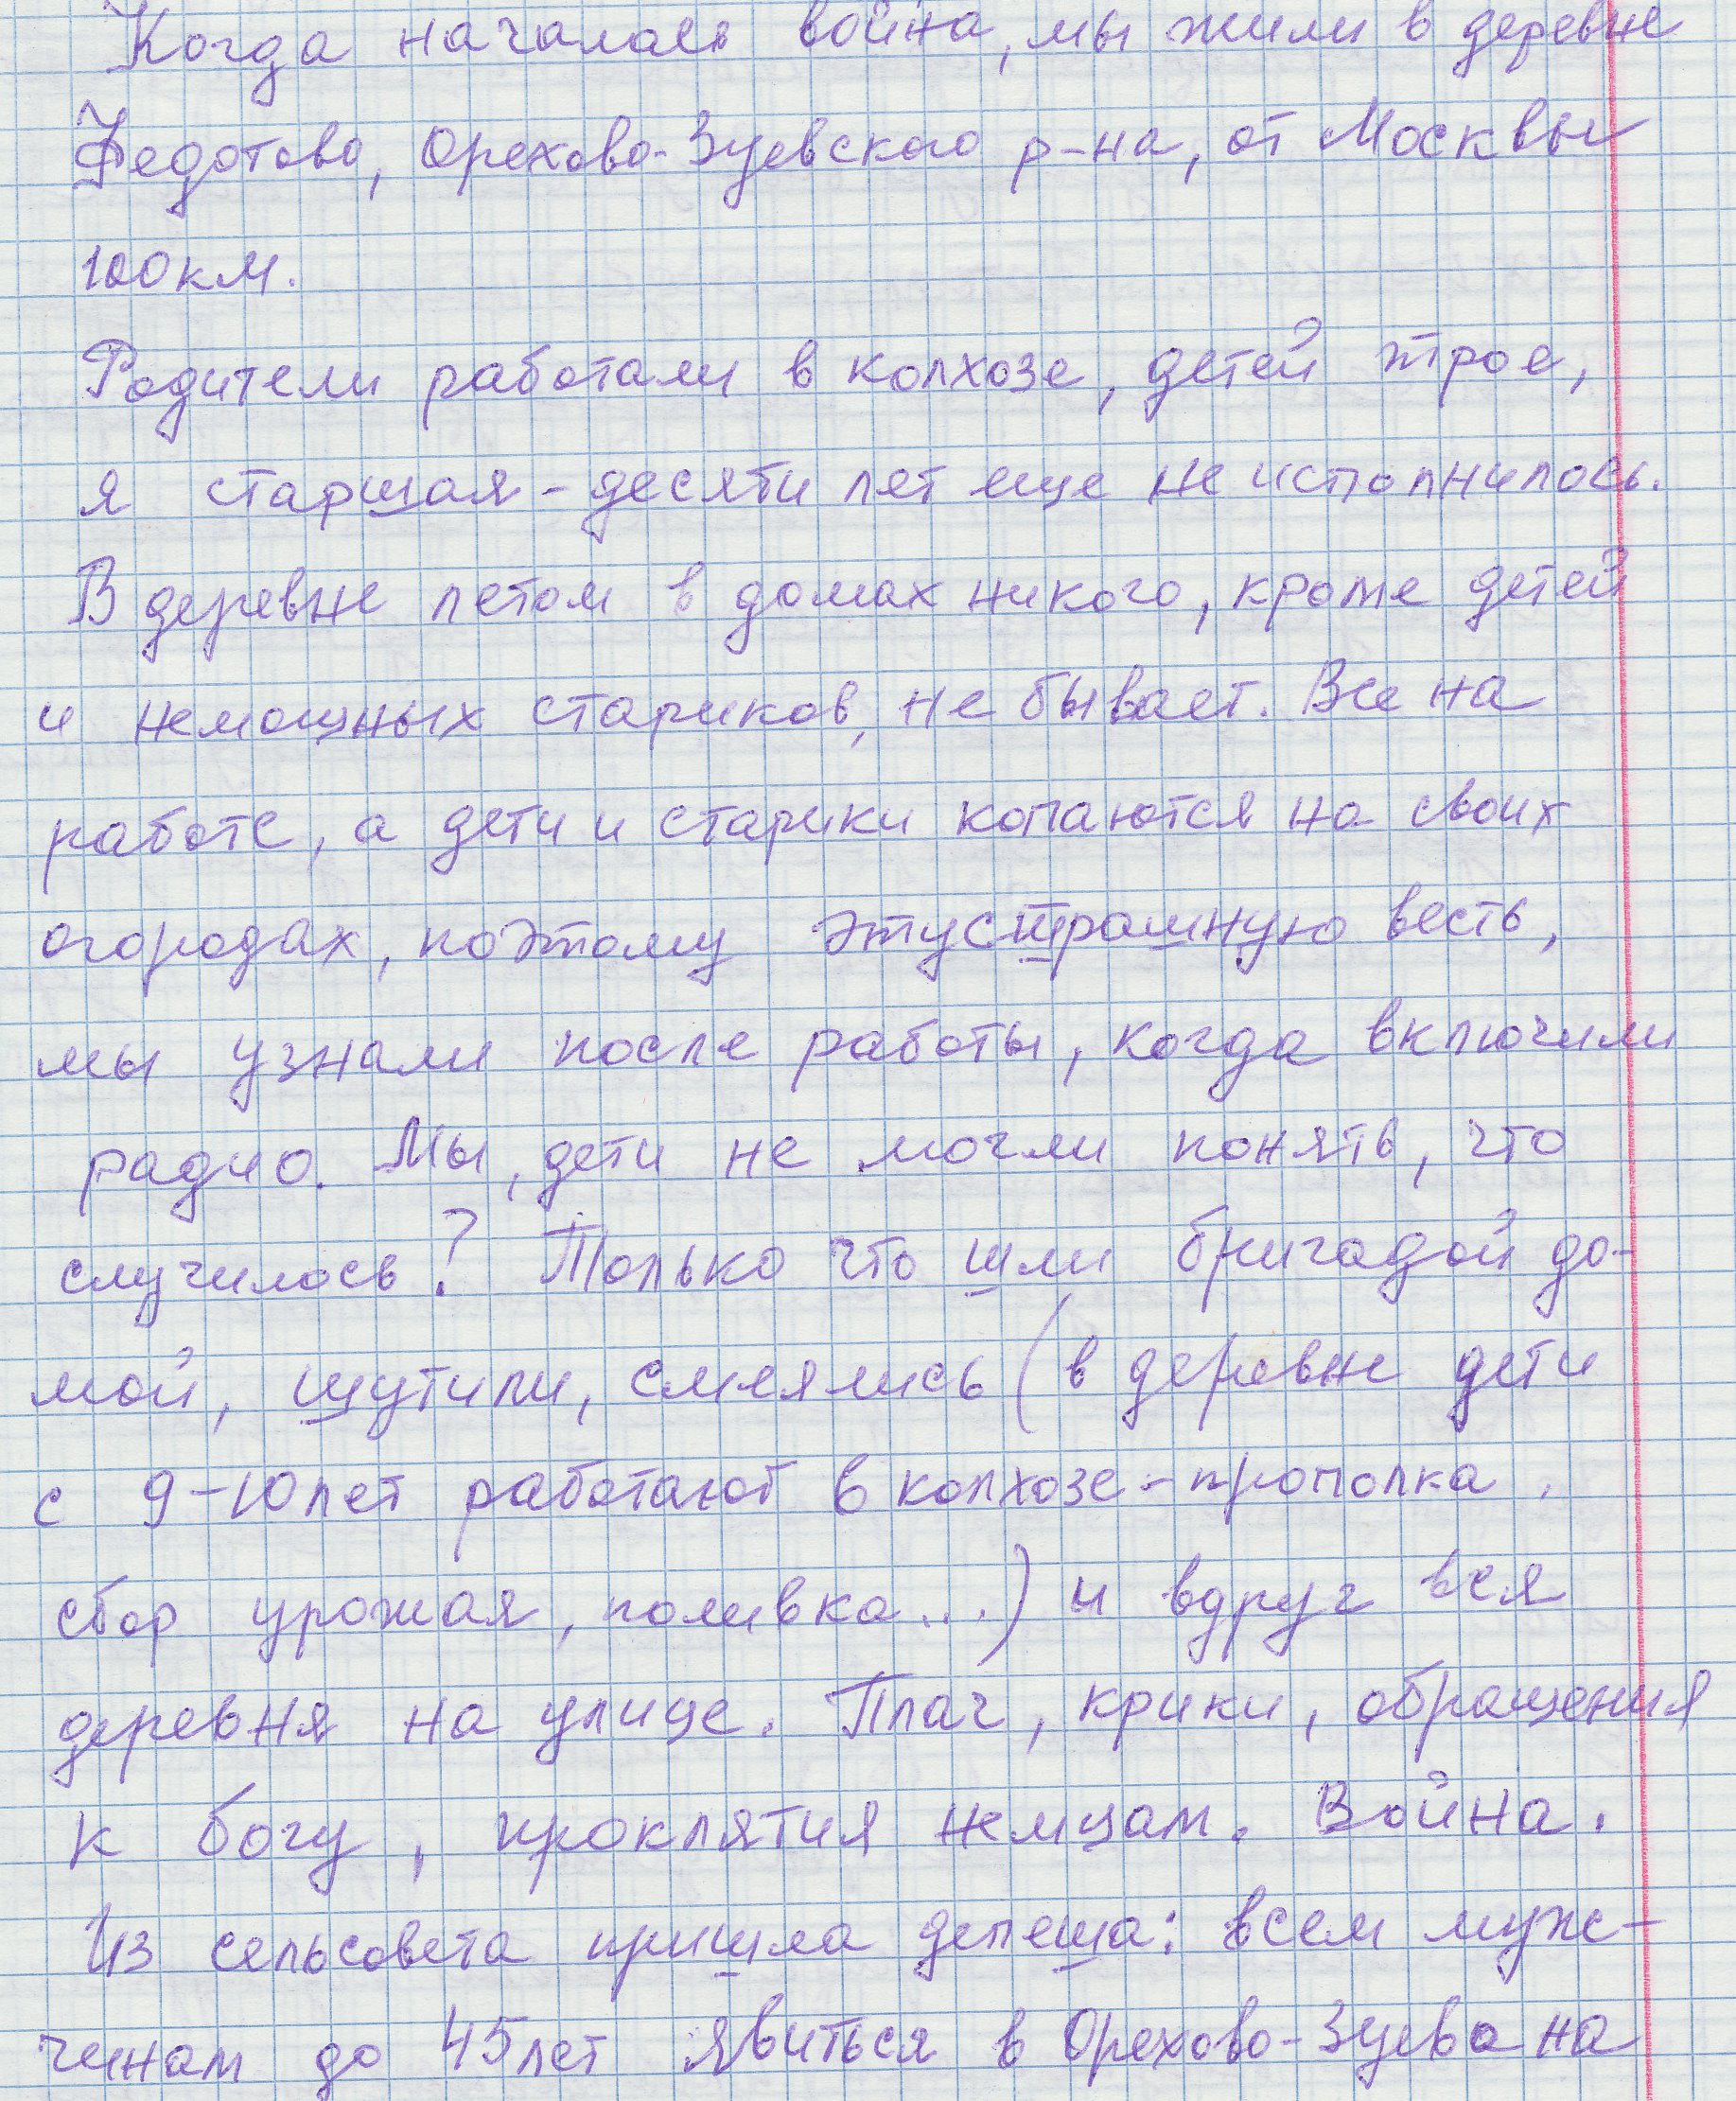 Когда началась война, мы жили в деревне
Федотово, Орехово-Зуевского р-на, от Москвы
100км.
Родители работали в колхозе, детей трое,
я старшая - десяти лет еще не исполнилось.
В деревне летом в домах никого, кроме детей
и немощных стариков, не бывает. Все на
работе, а дети и старики копаются на своих
огородах, поэтому эту страшную весть,
мы узнали после работы, когда включили
радио. Мы, дети не могли понять, что
случилось? Только что шли бригадой до-
мой, шутили, смеялись (в деревне дети
с 9-10 лет работают в колхозе - прополка,
сбор урожая, поливка...) и вдруг вся
деревня на улице. Плач, крики, обращения
к богу, проклятия немцам. Война.
Из сельсовета пришла депеша: всем муж-
чинам до 45 лет явиться в Орехово-Зуево на